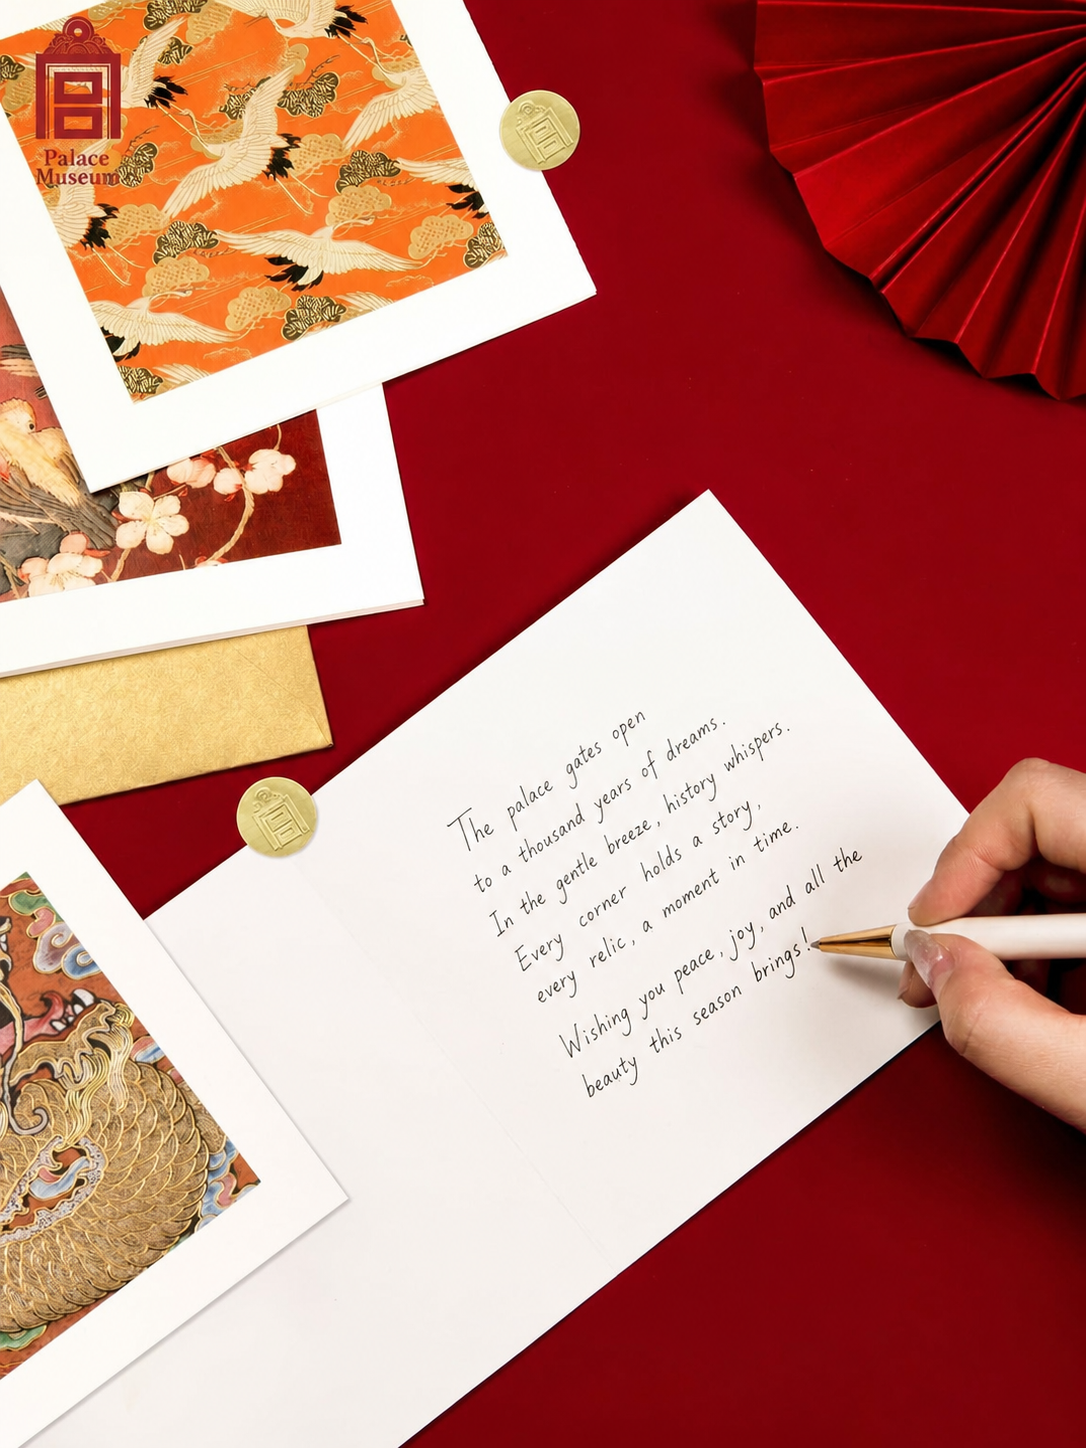 Palace
Museum
The palace gates open
to a thousand years of dreams.
In the gentle breeze, history whispers.
Every corner holds a story,
every relic, a moment in time.
Wishing you peace, joy, and all the
beauty this season brings!